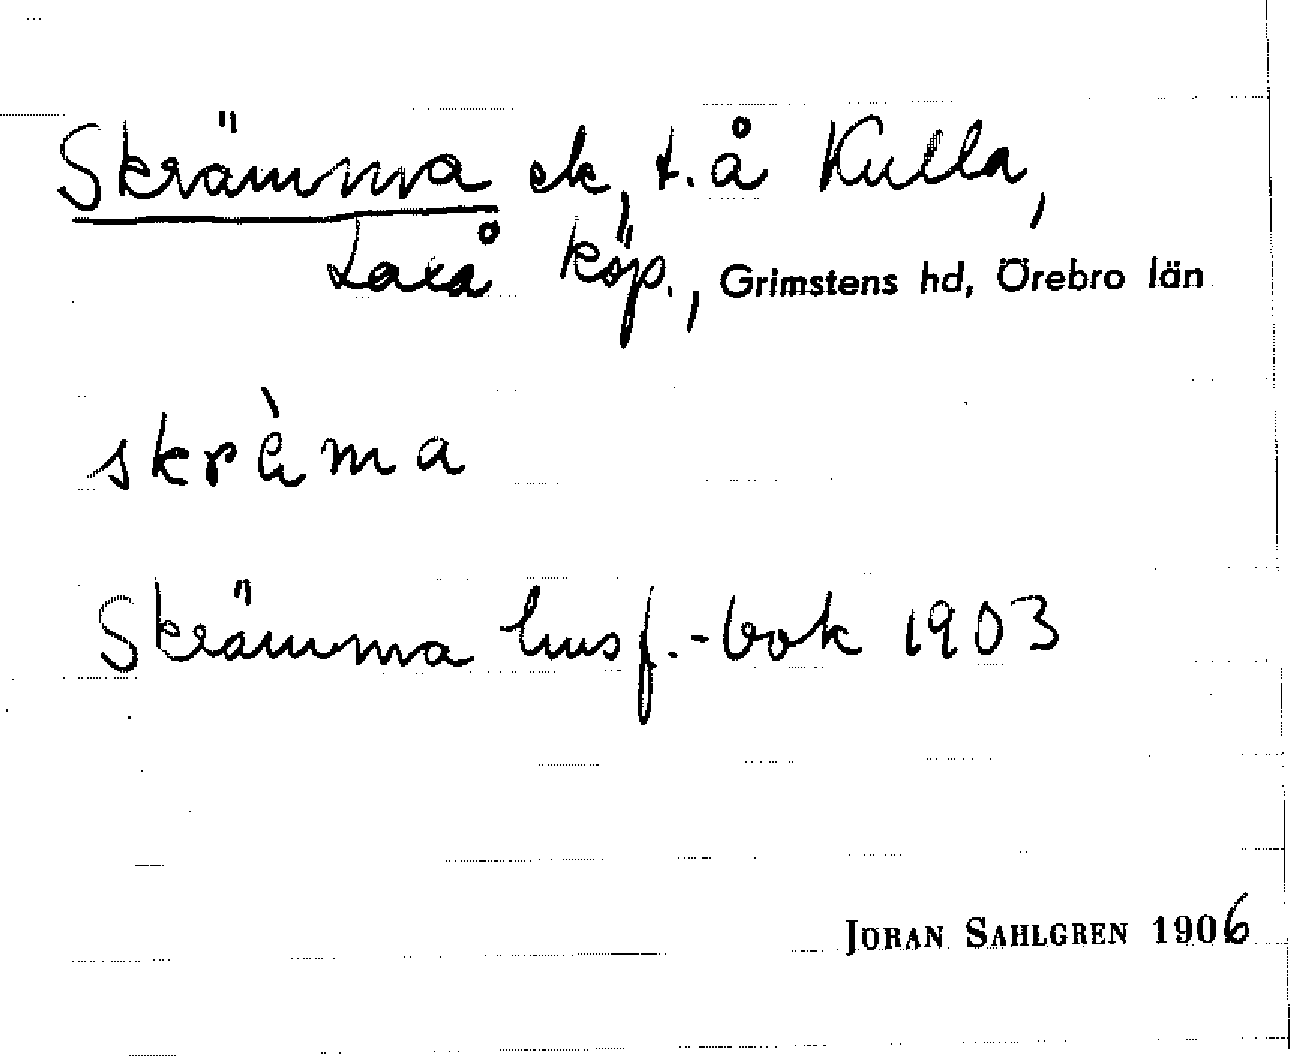 Skrämma ek, t. å Kulla,
Laxå köp., Grimstens hd, Örebro län
skrä̀ma
Skrämma husf.-bok 1903
JÖRAN SAHLGREN 1906